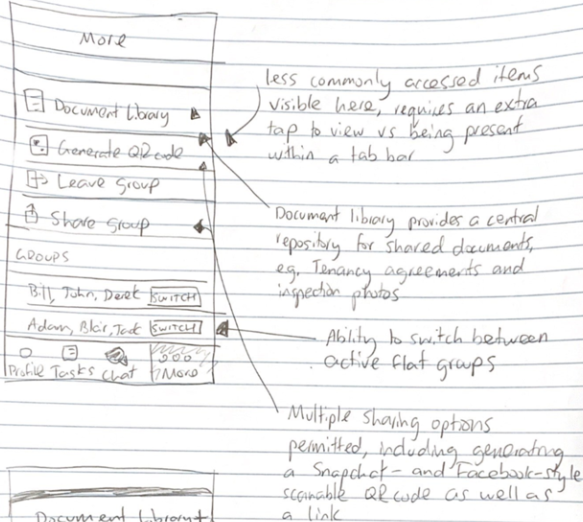 More
Document Library
Generate QR code
Leave Group
Share Group
GROUPS
Bill, John, Derek SWITCH
Adam, Blair, SWITCH
Profile Tasks Chat More
less commonly accessed items
visible here, requires an extra
tap to view vs being present
within a tab bar
Document library provides a central
repository for shared documents,
eg. Tenancy agreements and
inspection photos
Ability to switch between
active flat groups
Multiple sharing options
permitted, including generating
a Snapchat- and Facebook-style
scannable QR code as well as
a link
Document Library